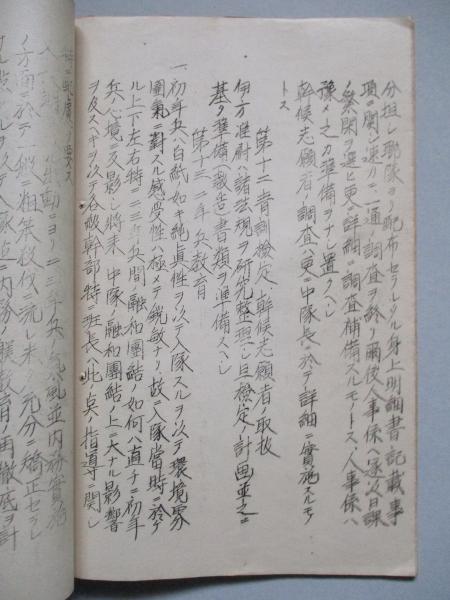 分担シ聯隊ヨリ配布セラレタル身上明細書記載事
項ニ関シ速カニ一通リ調査ヲ終リ爾後人事係ハ逐次日課
ノ余閑ヲ選ヒ更ニ詳細ニ調査補備スルモノトス、人事係ハ
豫メ之カ準備ヲナシ置クヘシ
幹候志願者ノ調査ハ更ニ中隊長ニ於テ詳細ニ實施スルモノ
トス
第十二 青訓檢定ト幹候志願者ノ取扱
伊方准尉ハ諸法規ヲ研究整理シ且檢定ノ計画並之ニ
基ク準備(報告)書類ヲ準備スヘシ
第十三 二年兵教育
一、初年兵ハ白紙ノ如キ純真性ヲ以テ入隊スルヲ以テ環境雰
囲氣ニ對スル感受性ハ極メテ鋭敏ナリ故ニ入隊當時ニ於ケ
ル上下左右特ニ二三年兵間ノ融和團結ノ如何ハ直チニ初年
兵ノ心境ニ反影シ將来中隊ノ融和團結ノ上ニ大ナル影響
ヲ及スヘキヲ以テ各級幹部特ニ班長ハ此ノ点ノ指導ニ関シ
特ニ
二三年兵ノ氣風並内務實施
ノ方面ニ於テ一般ニ粗笨
ニ流レ来ノ元分ニ矯正セラレ
内務ノ躾教育ノ再徹底ヲ計